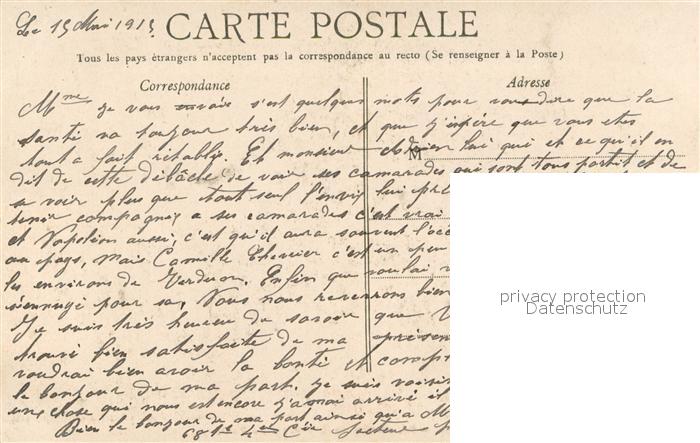 Le 15 Mai 1915
CARTE POSTALE
Tous les pays étrangers n'acceptent pas la correspondance au recto (Se renseigner à la Poste)
Correspondance
Adresse
Mme je vous envoie s'est quelques mots pour vous dire que la
santé va toujour très bien, et que j'espère que vous etes
tout a fait rétablis. Et monsieur lui qui et ce qu'il en
M
dit de cette débâcle de voir ses camarades qui sont tous partit et de
sa voir plus que tout seul l'envie lui pre
tenir compagnie a ses camarades c'est vrai
et Napoléon aussi, c'est qu'il aura souvent l'occ
au pays, mais Camille c'est un peu
les environs de Verdun. Enfin que voulai v
s'ennuyé pour sa, Nous nous reverrons bien
Je suis très heureu de savoir que V
trouvé bien satisfaite de ma présen
voudrai bien avoir la bonté et comp
le bonjour de ma part. Je suis voisin
une chose qui nous est encore jamai arrivé il
Bien le bonjour de ma part ainsi qu'a M
68 1e 4em Cie secteur p
privacy protection
Datenschutz